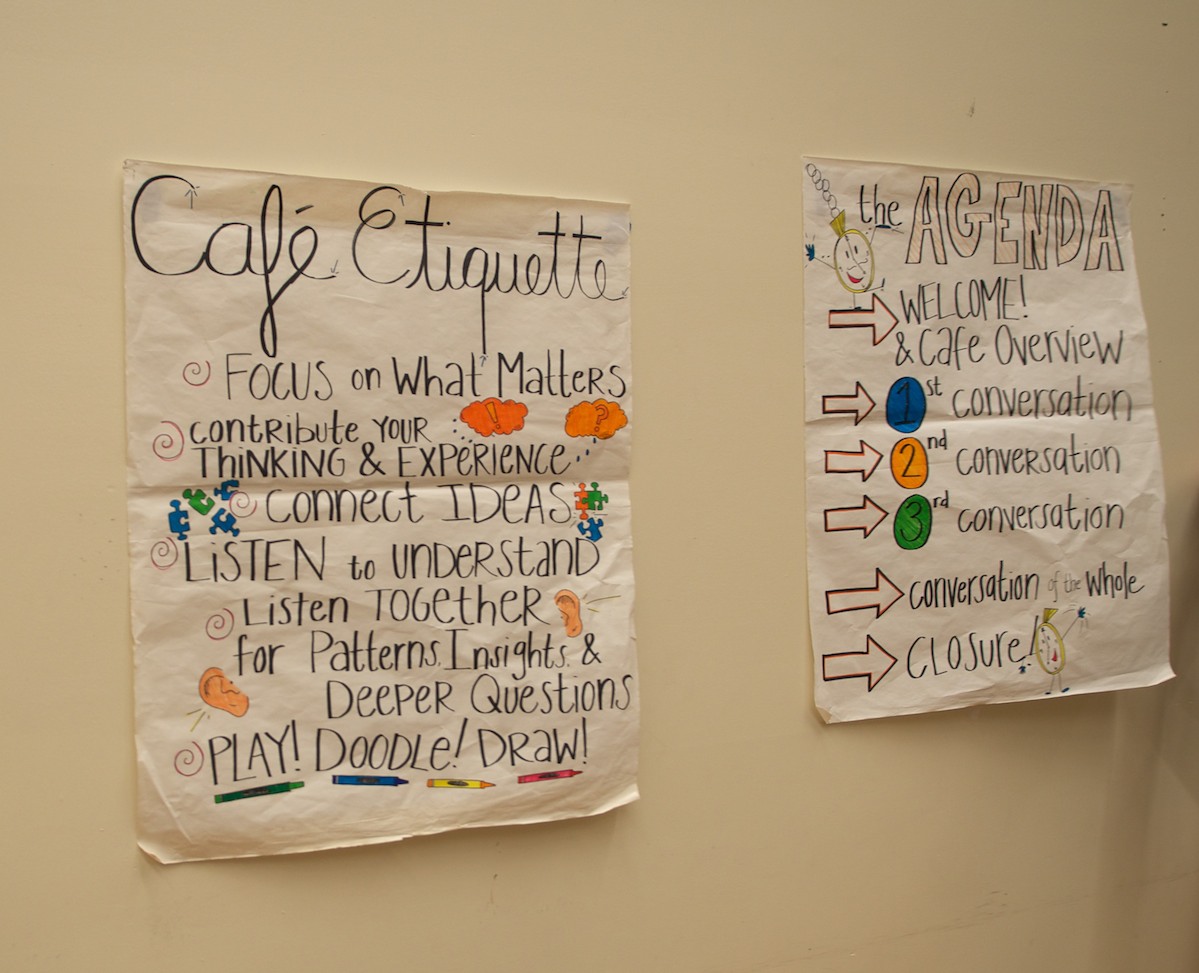 Café Etiquette
FOCUS on What Matters
contribute YOUR
THINKING & EXPERIENCE
! ?
CONNECT IDEAS
LISTEN to UNDERSTAND
Listen TOGETHER
for Patterns, Insights, &
DEEPER QUESTIONS
PLAY! DOODLE! DRAW!
the AGENDA
WELCOME!
& Cafe Overview
1st conversation
2nd conversation
3rd conversation
conversation of the whole
CLOSURE!